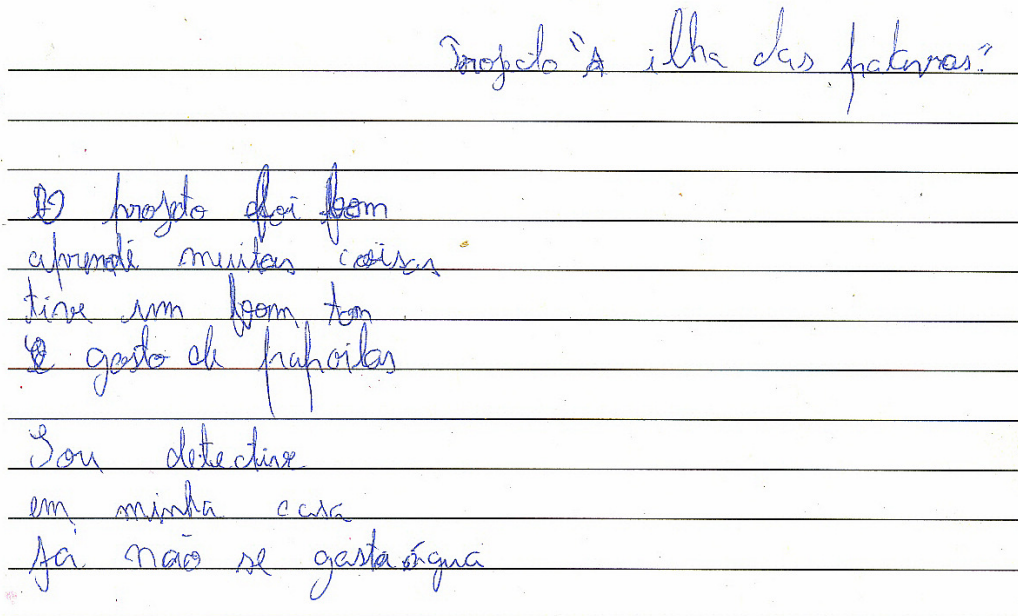 Projeto "A ilha das palavras"
O projeto foi bom
aprendi muitas coisas
tive um bom tom
e gosto de papoilas
Sou detective
em minha casa
Já não se gasta água